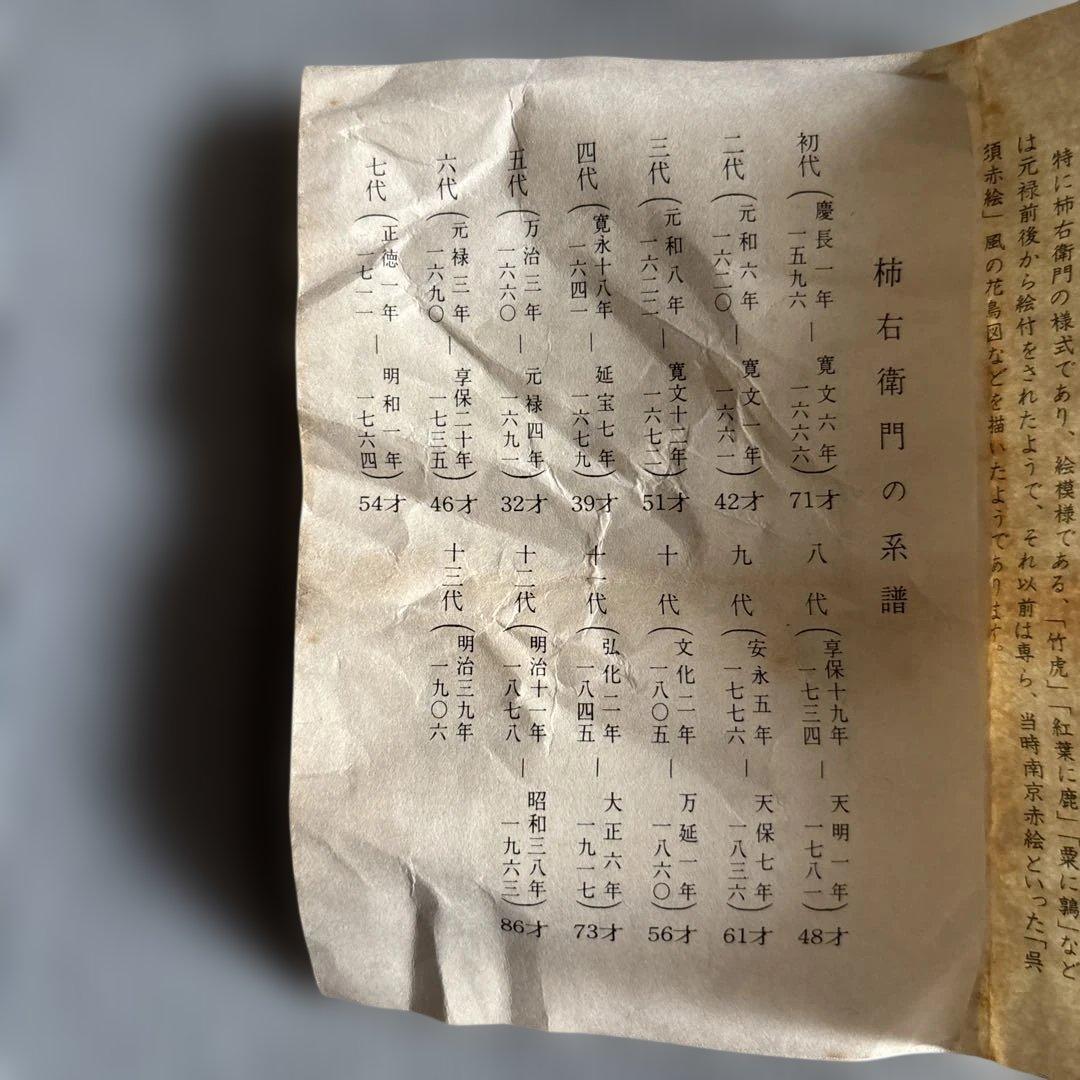 特に柿右衛門の様式であり、絵模様である、「竹虎」「紅葉に鹿」「粟に鶉」など
は元禄前後から絵付をされたようで、それ以前は専ら、当時南京赤絵といった「呉
須赤絵」風の花鳥図などを描いたようであります。
柿右衛門の系譜
初代(慶長一年 一五九六 — 寛文六年 一六六六)71才
二代(元和六年 一六二〇 — 寛文一年 一六六一)42才
三代(元和八年 一六二二 — 寛文十二年 一六七二)51才
四代(寛永十八年 一六四一 — 延宝七年 一六七九)39才
五代(万治三年 一六六〇 — 元禄四年 一六九一)32才
六代(元禄三年 一六九〇 — 享保二十年 一七三五)46才
七代(正徳一年 一七一一 — 明和一年 一七六四)54才
八代(享保十九年 一七三四 — 天明一年 一七八一)48才
九代(安永五年 一七七六 — 天保七年 一八三六)61才
十代(文化二年 一八〇五 — 万延一年 一八六〇)56才
十一代(弘化二年 一八四五 — 大正六年 一九一七)73才
十二代(明治十一年 一八七八 — 昭和三八年 一九六三)86才
十三代(明治三九年 一九〇六